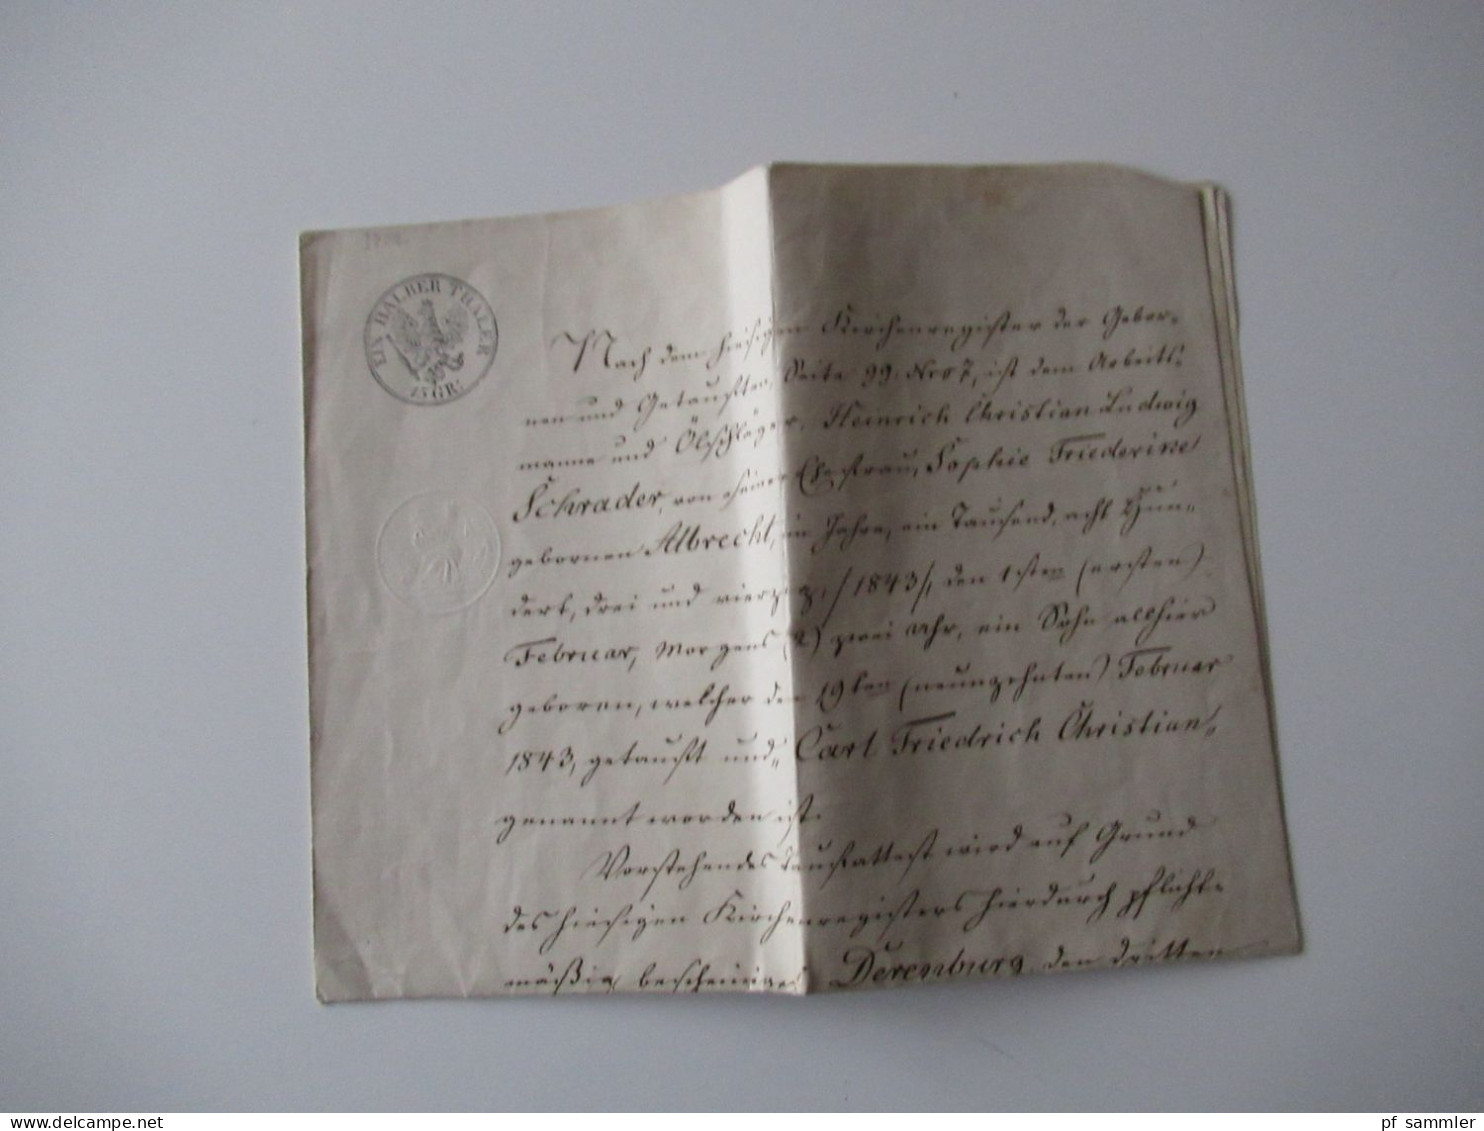 EIN HALBER THALER
15 GR:
Nach dem hiesigen Kirchenregister der Gebor-
nen und Getauften, Seite 99. Nro 7, ist dem Arbeits-
manne und Ölschläger, Heinrich Christian Ludwig
Schrader, von seiner Ehefrau, Sophie Friederike
gebornen Albrecht, im Jahre, ein Tausend, acht Hun-
dert, drei und vierzig, /1843/, den 1sten (ersten)
Februar, Morgens (2) zwei Uhr, ein Sohn allhier
geboren, welcher den 19ten (neunzehnten) Februar
1843, getauft und „Carl Friedrich Christian„
genannt worden ist.
Vorstehendes Taufattest wird auf Grund
des hiesigen Kirchenregisters hierdurch pflicht-
mäßig bescheinigt. Derenburg, den dritten
pf sammler